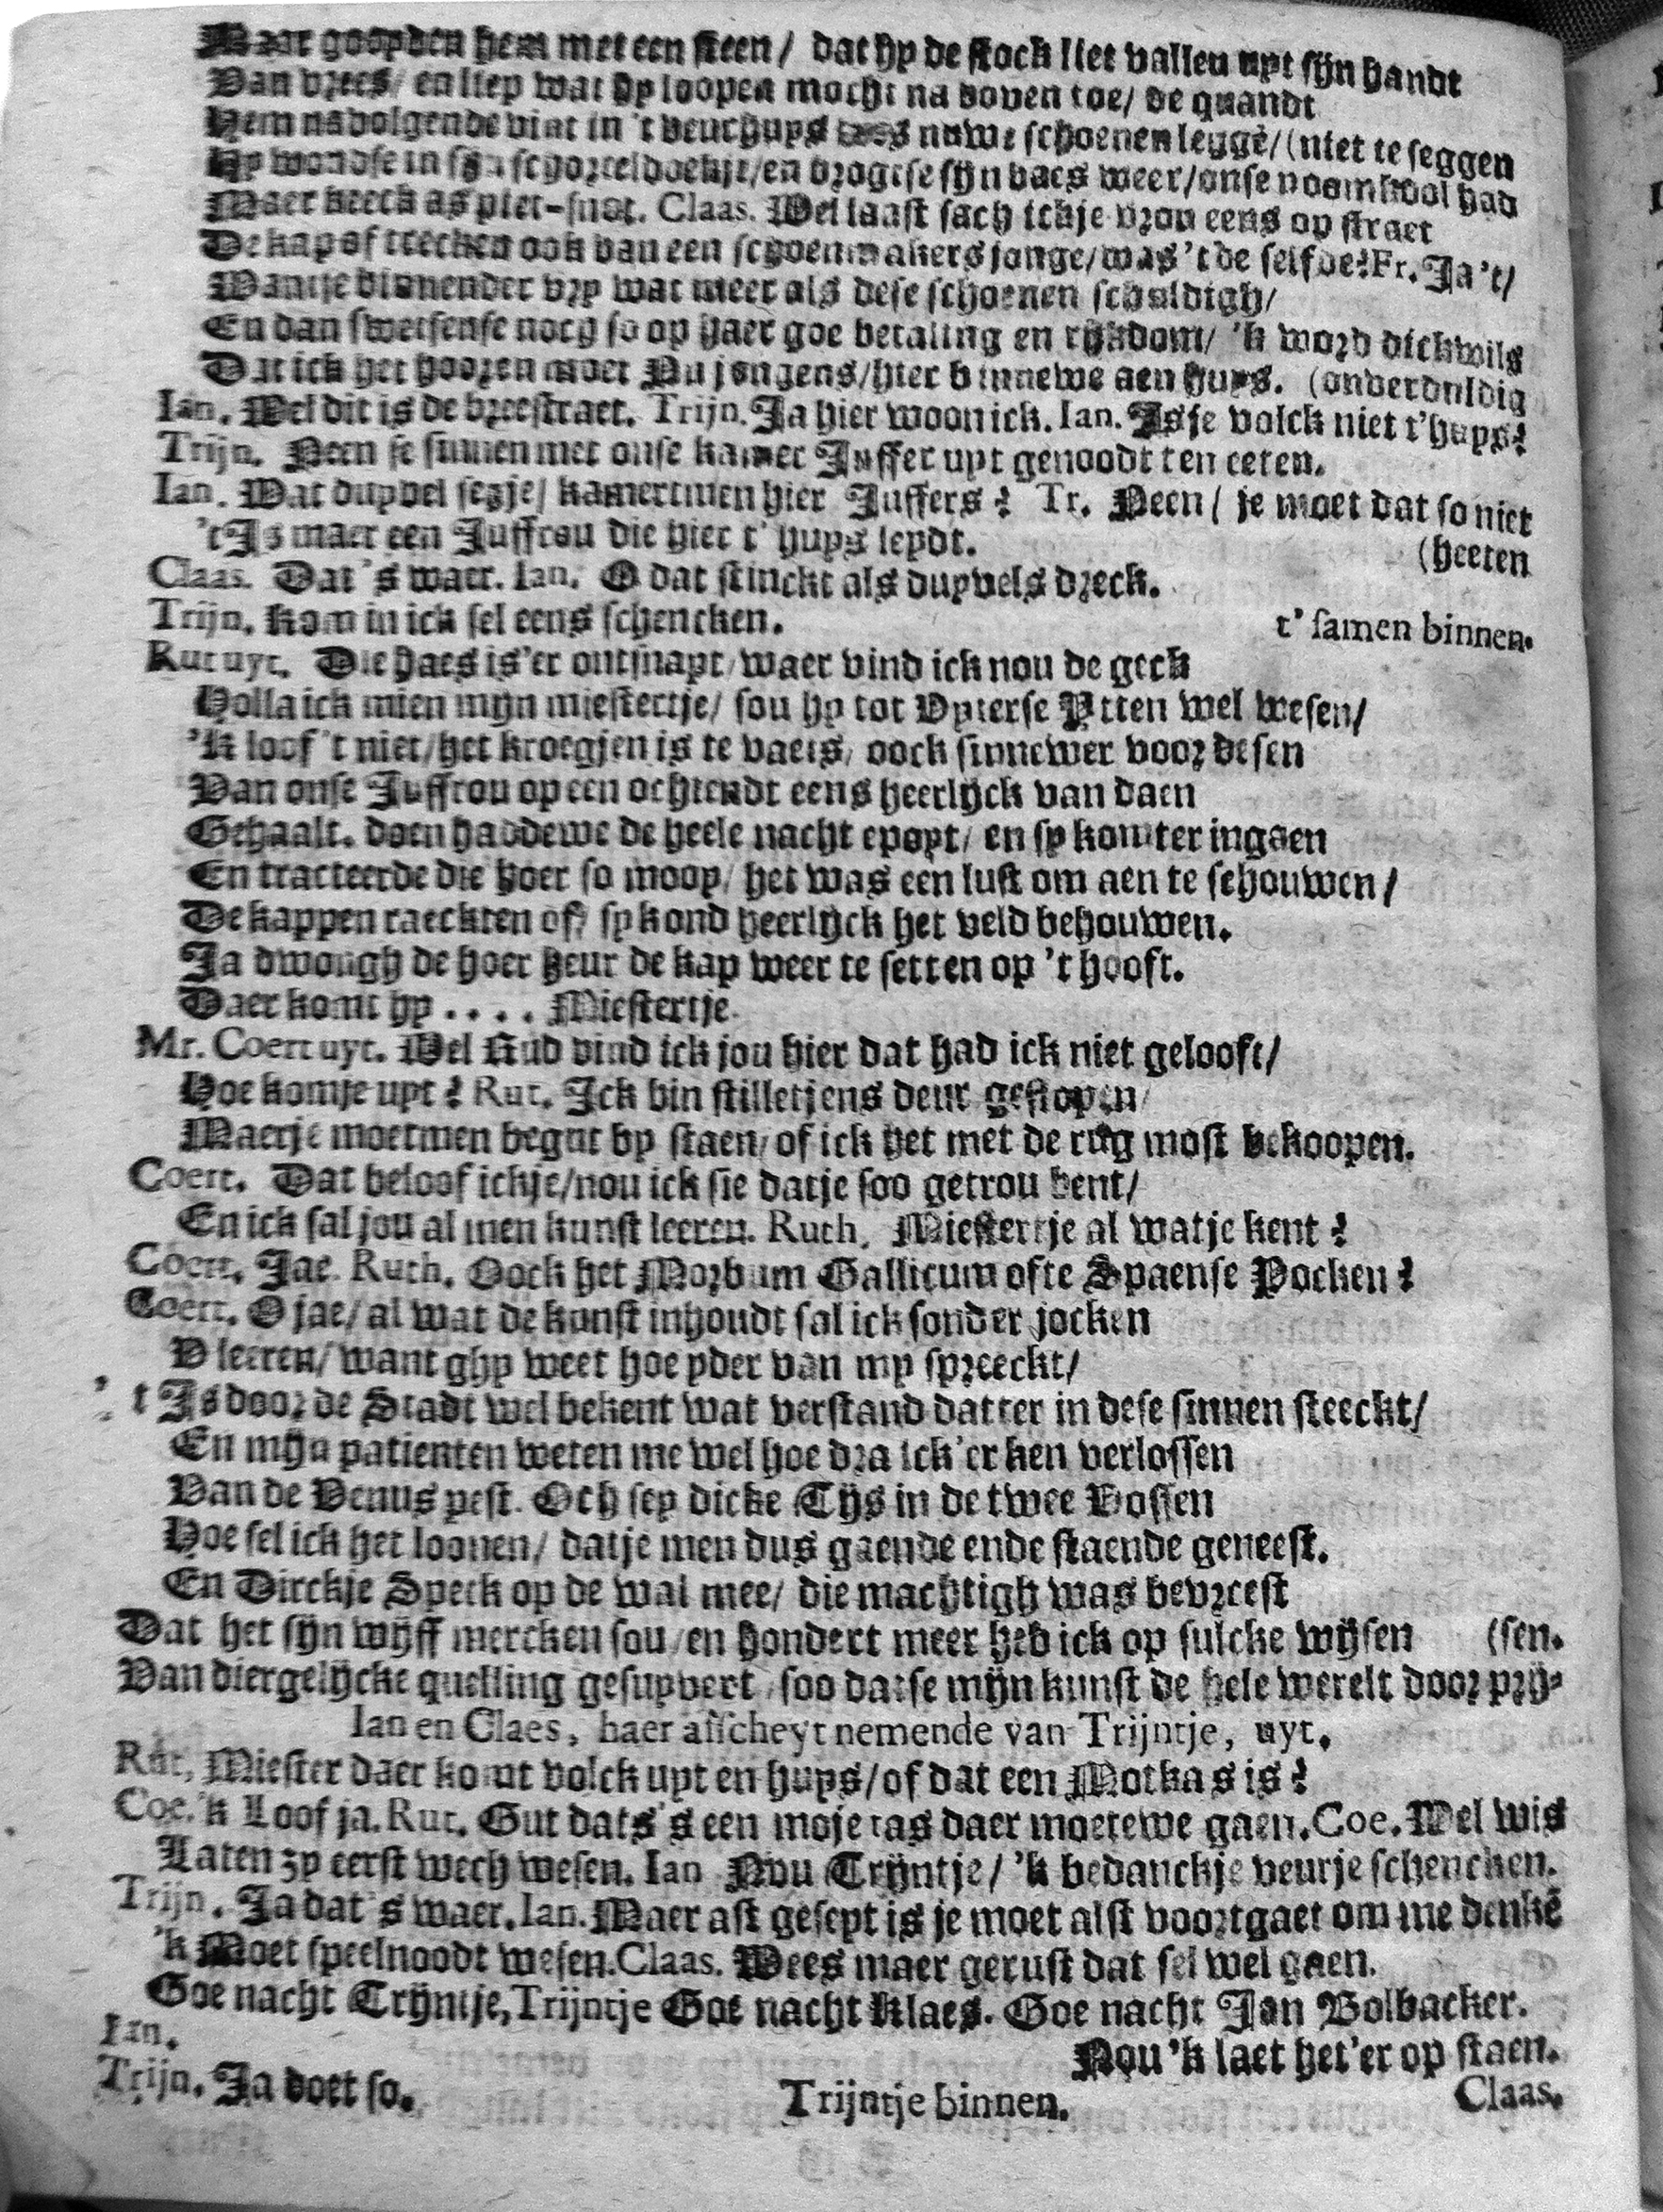 Maar goopden hem met een steen / dat hy de stock liet vallen uyt sijn handt
Van vrees / en liep wat hy loopen mocht na boven toe / de quandt
Hem navolgende vint in 't veurhuys nuwe schoenen leggē / (niet te seggen
Hy wondse in sijn schorteldoekje / en brogtse sijn baes weer / onse noom hool had
Maer keeck as piet-snot. Claas. Wel laast sach ickje vrou eens op straet
De kap of trecken ook van een schoenmakers jonge / was 't de selfde? Fr. Ja 't /
Wantse binnender vry wat meer als dese schoenen schuldigh /
En dan swetsense noch so op haer goe betaling en rijkdom / 'k word dickwils
Dat ick het hooren moet Nu jongens / hier binnewe aen huys. (onverduldig
Ian. Wel dit is de breestraet. Trijn. Ja hier woon ick. Ian. Is je volck niet t'huys?
Trijn. Neen se sinnen met onse kamer Juffer uyt genoodt ten eeten.
Ian. Wat duyvel segje / kamertmen hier Juffers? Tr. Neen / je moet dat so niet
't Is maer een Juffrou die hier t' huys leydt. (heeten
Claas. Dat 's waer. Ian. O dat stinckt als duyvels dreck.
Trijn. Kom in ick sel eens schencken. t' samen binnen.
Rut uyt. Die haes is 'er ontsnapt / waer vind ick nou de geck
Holla ick mien mijn miestertje / sou hy tot Vyterse Pitten wel wesen /
'K loof 't niet / het kroegjen is te vaers / oock sinnewer voor desen
Van onse Juffrou op een ochtendt eens heerlijck van daen
Gehaalt. doen haddewe de heele nacht epopt / en sy komter ingaen
En tracteerde die hoer so mooy / het was een lust om aen te schouwen /
De kappen raeckten of / sy kond heerlijck het veld behouwen.
Ja dwough de hoer heur de kap weer te setten op 't hooft.
Daer komt hy . . . . Miestertje.
Mr. Coert uyt. Wel Rud vind ick jou hier dat had ick niet gelooft /
Hoe komje uyt? Rut. Ick bin stilletjens deur geslopen /
Maerje moetmen begut by staen / of ick het met de rug most bekoopen.
Coert. Dat beloof ickje / nou ick sie datje soo getrou bent /
En ick sal jou al men kunst leeren. Ruth. Miestertje al watje kent?
Coert. Jae. Ruth. Oock het Morbum Gallicum ofte Spaense Pocken?
Coert. O jae / al wat de konst inhoudt sal ick sonder jocken
V leeren / want ghy weet hoe yder van my spreeckt /
't Is door de Stadt wel bekent wat verstand datter in dese sinnen steeckt /
En mijn patienten weten me wel hoe dra ick 'er ken verlossen
Van de Venus pest. Och sey dicke Tijs in de twee Vossen
Hoe sel ick het loonen / datje men dus gaende ende staende geneest.
En Dirckje Speck op de wal mee / die machtigh was bevreest
Dat het sijn wijff mercken sou / en hondert meer heb ick op sulcke wijsen (sen.
Van diergelijcke quelling gesuyvert / soo datse mijn kunst de hele werelt door prij-
Ian en Claes, haer affcheyt nemende van Trijntje, uyt.
Rut, Miester daer komt volck uyt en huys / of dat een Motkas is?
Coe. 'k Loof ja. Rut. Gut dats 's een moje tas daer moetewe gaen. Coe. Wel wis
Laten zy eerst wech wesen. Ian Nou Trijntje / 'k bedanckje veurje schencken.
Trijn. Ja dat 's waer. Ian. Maer ast geseyt is je moet alst voortgaet om me denkē
'k Moet speelnoodt wesen. Claas. Wees maer gerust dat sel wel gaen.
Goe nacht Trijntje, Trijntje Goe nacht Klaes. Goe nacht Jan Bolbacker.
Ian. Nou 'k laet het 'er op staen.
Trijn. Ja doet so. Trijntje binnen. Claas.